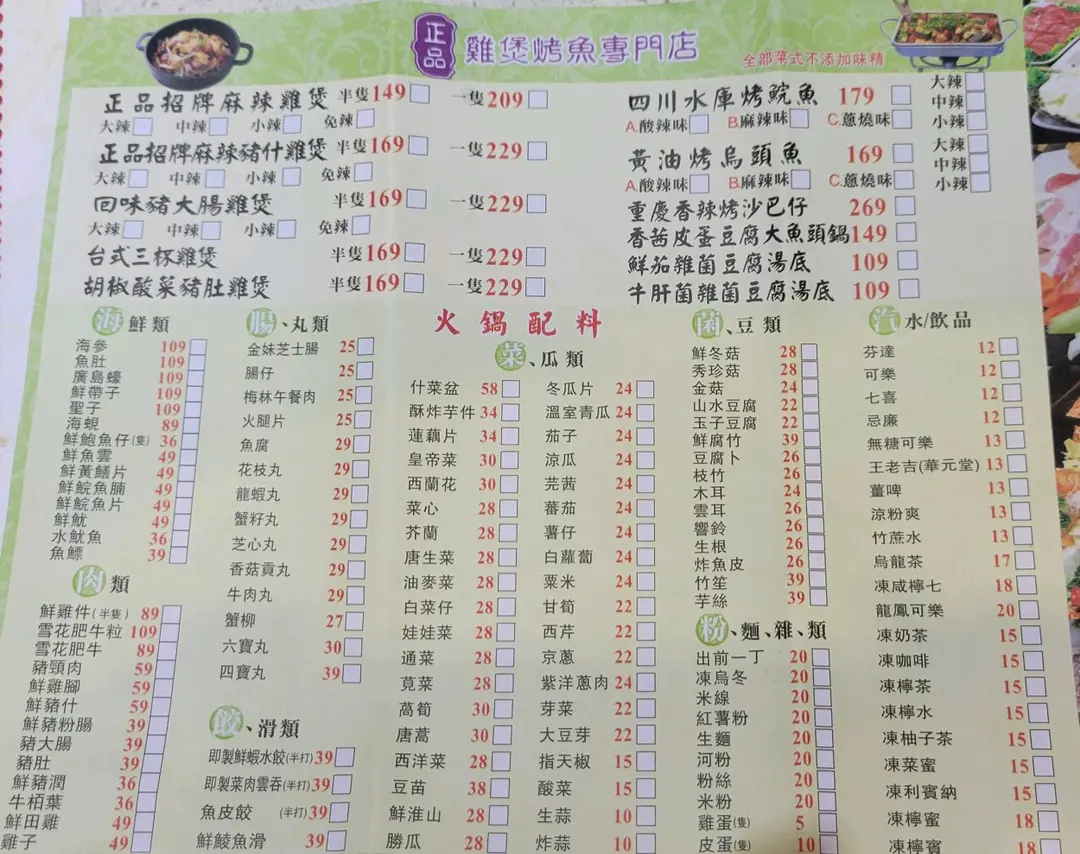 正品 雞煲烤魚專門店
全部菜式不添加味精
正品招牌麻辣雞煲 半隻149 一隻209
大辣 中辣 小辣 免辣
正品招牌麻辣豬什雞煲 半隻169 一隻229
大辣 中辣 小辣 免辣
回味豬大腸雞煲 半隻169 一隻229
大辣 中辣 小辣 免辣
台式三杯雞煲 半隻169 一隻229
胡椒酸菜豬肚雞煲 半隻169 一隻229
四川水庫烤鯇魚 179
A.酸辣味 B.麻辣味 C.蔥燒味
大辣
中辣
小辣
黃油烤烏頭魚 169
A.酸辣味 B.麻辣味 C.蔥燒味
大辣
中辣
小辣
重慶香辣烤沙巴仔 269
香茜皮蛋豆腐大魚頭鍋149
鮮茄雜菌豆腐湯底 109
牛肝菌雜菌豆腐湯底 109
火鍋配料
海鮮類
海參 109
魚肚 109
廣島蠔 109
鮮帶子 109
聖子 109
海蜆 89
鮮鮑魚仔(隻) 36
鮮魚雲 49
鮮黃鱔片 49
鮮鯇魚腩 49
鮮鯇魚片 49
鮮魷 49
水魷魚 36
魚鰾 39
肉類
鮮雞件(半隻) 89
雪花肥牛粒 109
雪花肥牛 89
豬頸肉 59
鮮雞腳 59
鮮豬什 59
鮮豬粉腸 39
豬大腸 39
豬肚 39
鮮豬潤 36
牛栢葉 36
鮮田雞 49
雞子 49
腸、丸類
金妹芝士腸 25
腸仔 25
梅林午餐肉 25
火腿片 25
魚腐 29
花枝丸 29
龍蝦丸 29
蟹籽丸 29
芝心丸 29
香菇貢丸 29
牛肉丸 29
蟹柳 27
六寶丸 30
四寶丸 39
餃、滑類
即製鮮蝦水餃(半打)39
即製菜肉雲吞(半打)39
魚皮餃 (半打)39
鮮鯪魚滑 39
菜、瓜類
什菜盆 58
酥炸芋件 34
蓮藕片 34
皇帝菜 30
西蘭花 30
菜心 28
芥蘭 28
唐生菜 28
油麥菜 28
白菜仔 28
娃娃菜 28
通菜 28
莧菜 28
萵筍 30
唐蒿 30
西洋菜 28
豆苗 38
鮮淮山 28
勝瓜 28
冬瓜片 24
溫室青瓜 24
茄子 24
涼瓜 24
芫茜 24
蕃茄 24
薯仔 24
白蘿蔔 24
粟米 24
甘筍 22
西芹 22
京蔥 22
紫洋蔥肉 24
芽菜 22
大豆芽 22
指天椒 15
酸菜 15
生蒜 10
炸蒜 10
菌、豆類
鮮冬菇 28
秀珍菇 28
金菇 24
山水豆腐 22
玉子豆腐 22
鮮腐竹 39
豆腐卜 26
枝竹 26
木耳 24
雲耳 26
響鈴 26
生根 26
炸魚皮 26
竹笙 39
芋絲 39
粉、麵、雜、類
出前一丁 20
凍烏冬 20
米線 20
紅薯粉 20
生麵 20
河粉 20
粉絲 20
米粉 20
雞蛋(隻) 5
皮蛋(隻) 10
汽水/飲品
芬達 12
可樂 12
七喜 12
忌廉 12
無糖可樂 13
王老吉(華元堂) 13
薑啤 13
涼粉爽 13
竹蔗水 13
烏龍茶 17
凍咸檸七 18
龍鳳可樂 20
凍奶茶 15
凍咖啡 15
凍檸茶 15
凍檸水 15
凍柚子茶 15
凍菜蜜 15
凍利賓納 15
凍檸蜜 18
凍檸賓 18